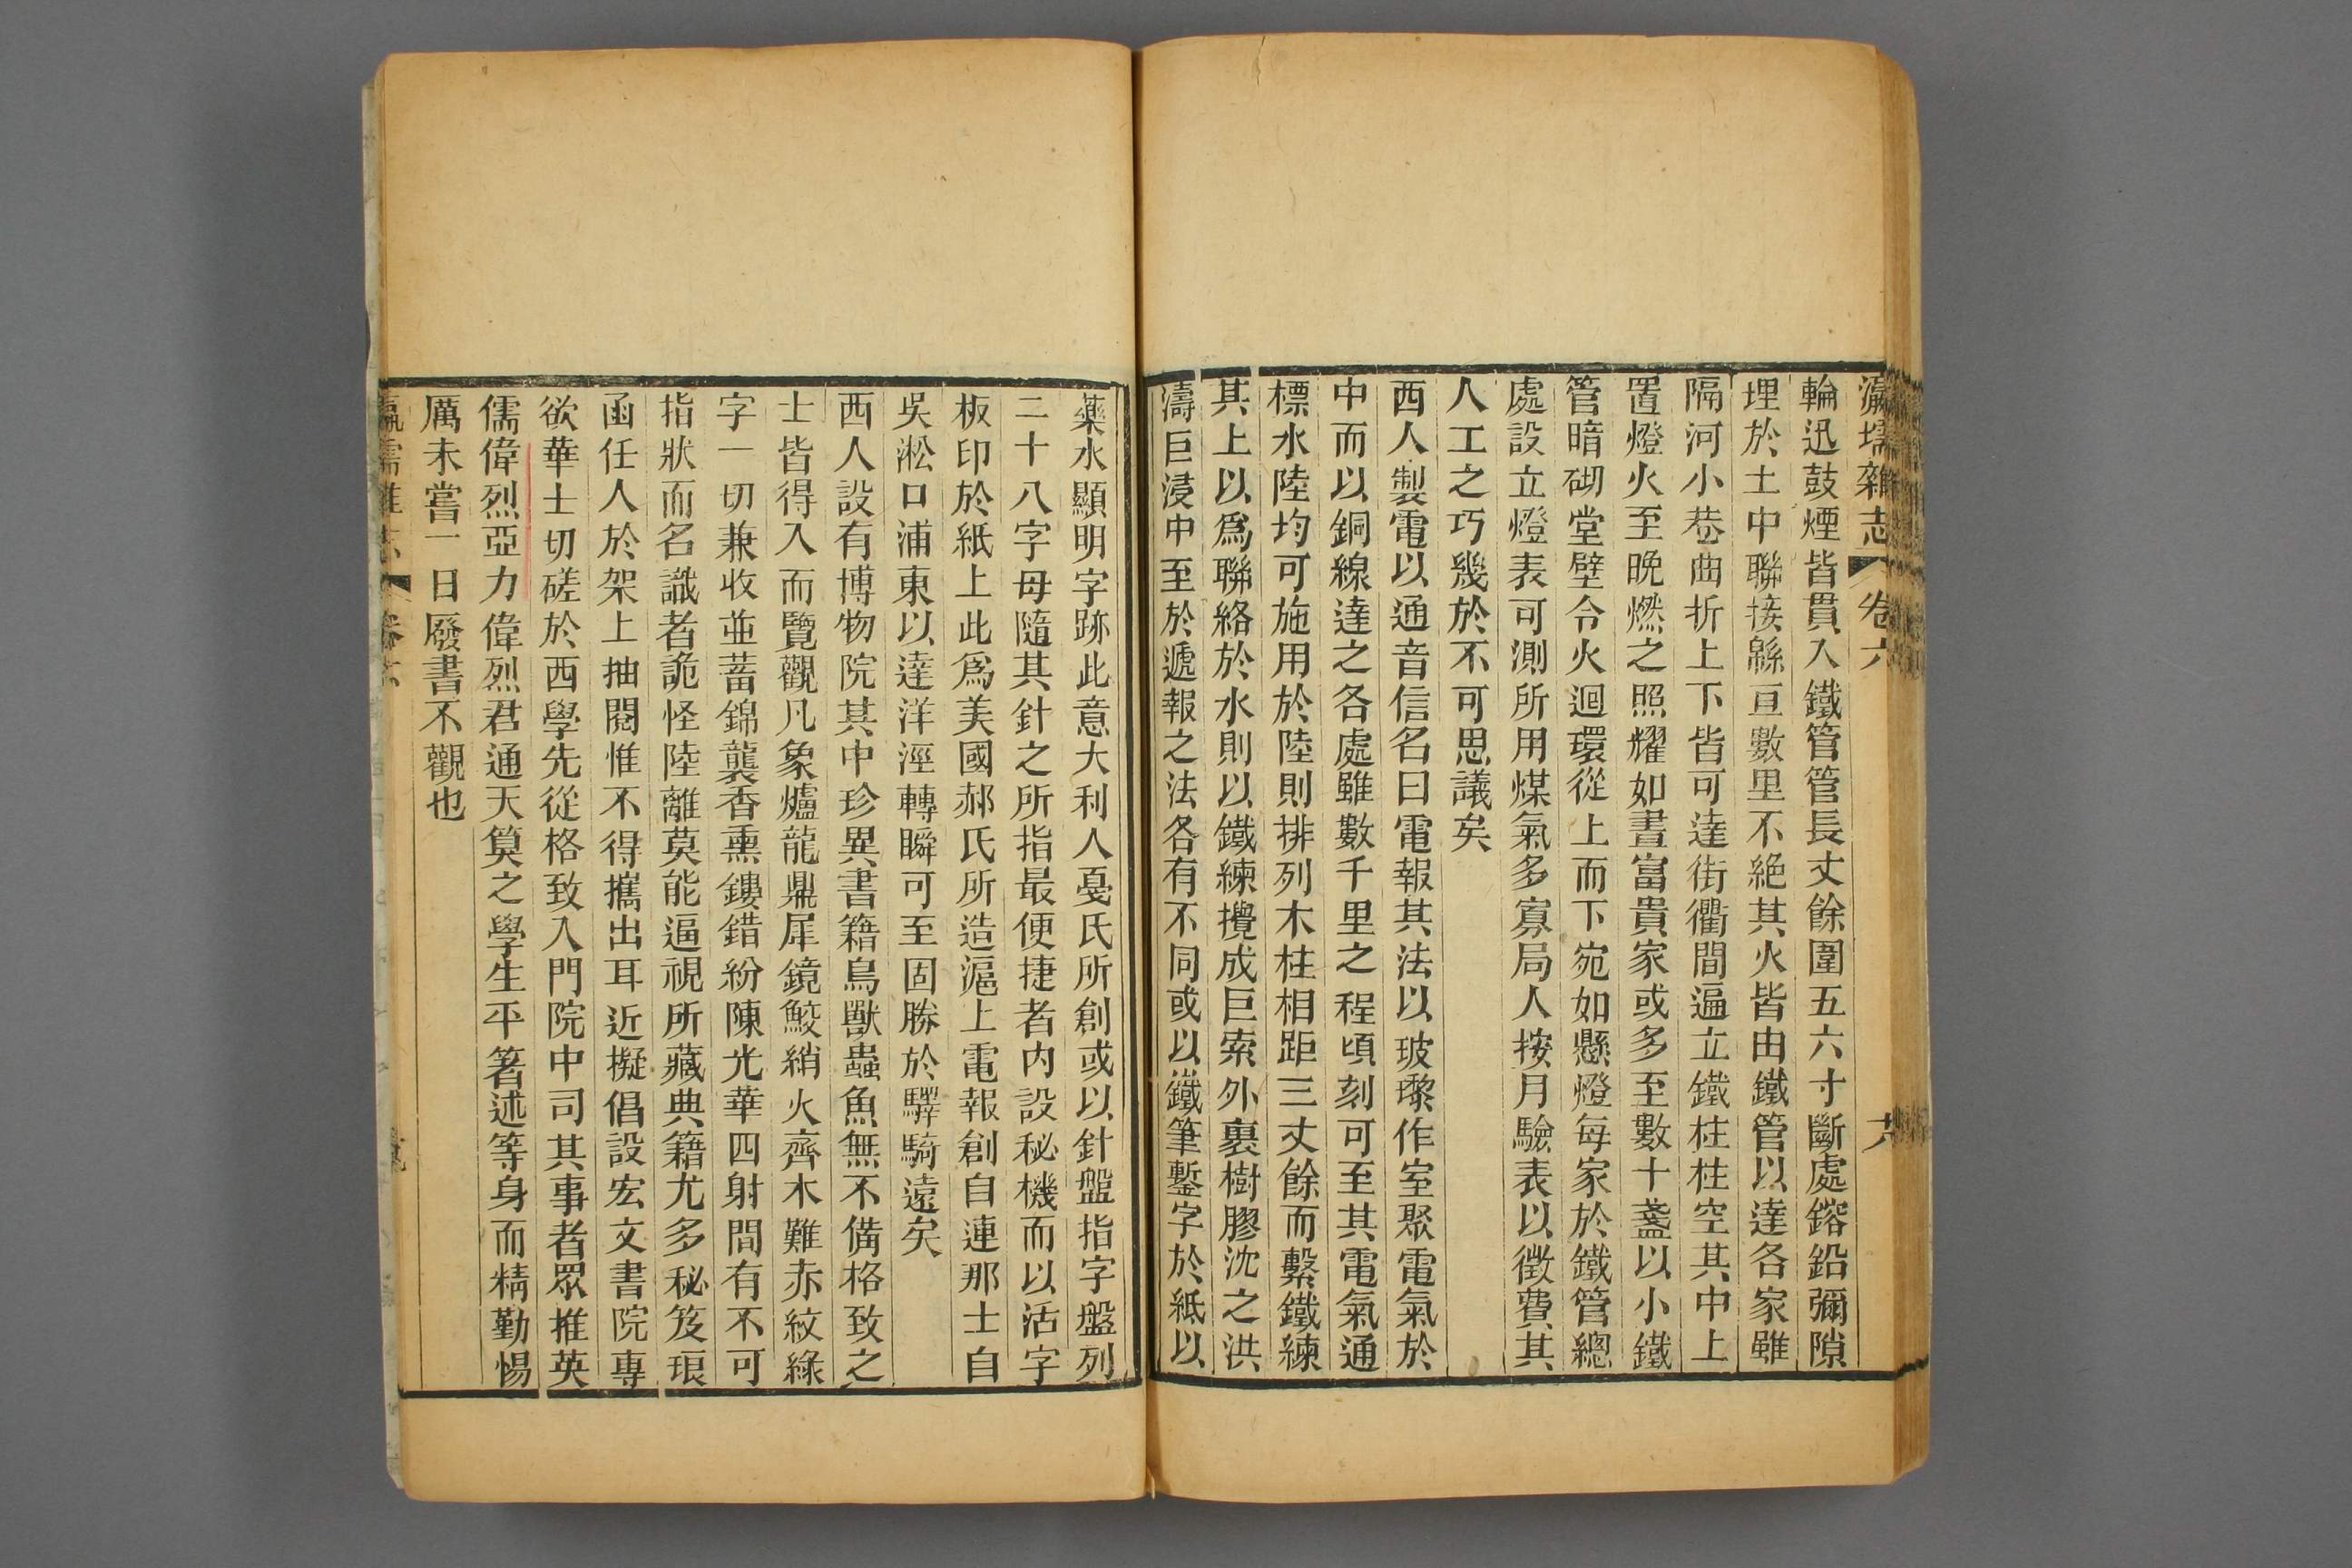 瀛壖雜志 卷六 大
輪迅鼓煙皆貫入鐵管管長丈餘圍五六寸斷處鎔鉛彌隙
埋於土中聯接緜亘數里不絕其火皆由鐵管以達各家雖
隔河小巷曲折上下皆可達街衢間遍立鐵柱柱空其中上
置燈火至晚燃之照耀如晝富貴家或多至數十盞以小鐵
管暗砌堂壁令火迴環從上而下宛如懸燈每家於鐵管總
處設立燈表可測所用煤氣多寡局人按月驗表以徵費其
人工之巧幾於不可思議矣
西人製電以通音信名曰電報其法以玻瓈作室聚電氣於
中而以銅線達之各處雖數千里之程頃刻可至其電氣通
標水陸均可施用於陸則排列木柱相距三丈餘而繫鐵練
其上以爲聯絡於水則以鐵練攪成巨索外裹樹膠沈之洪
濤巨浸中至於遞報之法各有不同或以鐵筆鏨字於紙以
藥水顯明字跡此意大利人戞氏所創或以針盤指字盤列
二十八字母隨其針之所指最便捷者内設秘機而以活字
板印於紙上此爲美國郝氏所造滬上電報創自連那士自
吳淞口浦東以達洋涇轉瞬可至固勝於驛騎遠矣
西人設有博物院其中珍異書籍鳥獸蟲魚無不備格致之
士皆得入而覽觀凡象爐龍鼎犀鏡鮫綃火齊木難赤紋綠
字一切兼收並蓄錦襲香熏鏤錯紛陳光華四射間有不可
指狀而名識者詭怪陸離莫能逼視所藏典籍尤多秘笈琅
函任人於架上抽閱惟不得攜出耳近擬倡設宏文書院專
欲華士切磋於西學先從格致入門院中司其事者眾推英
儒偉烈亞力偉烈君通天算之學生平箸述等身而精勤惕
厲未嘗一日廢書不觀也
瀛壖雜志 卷六